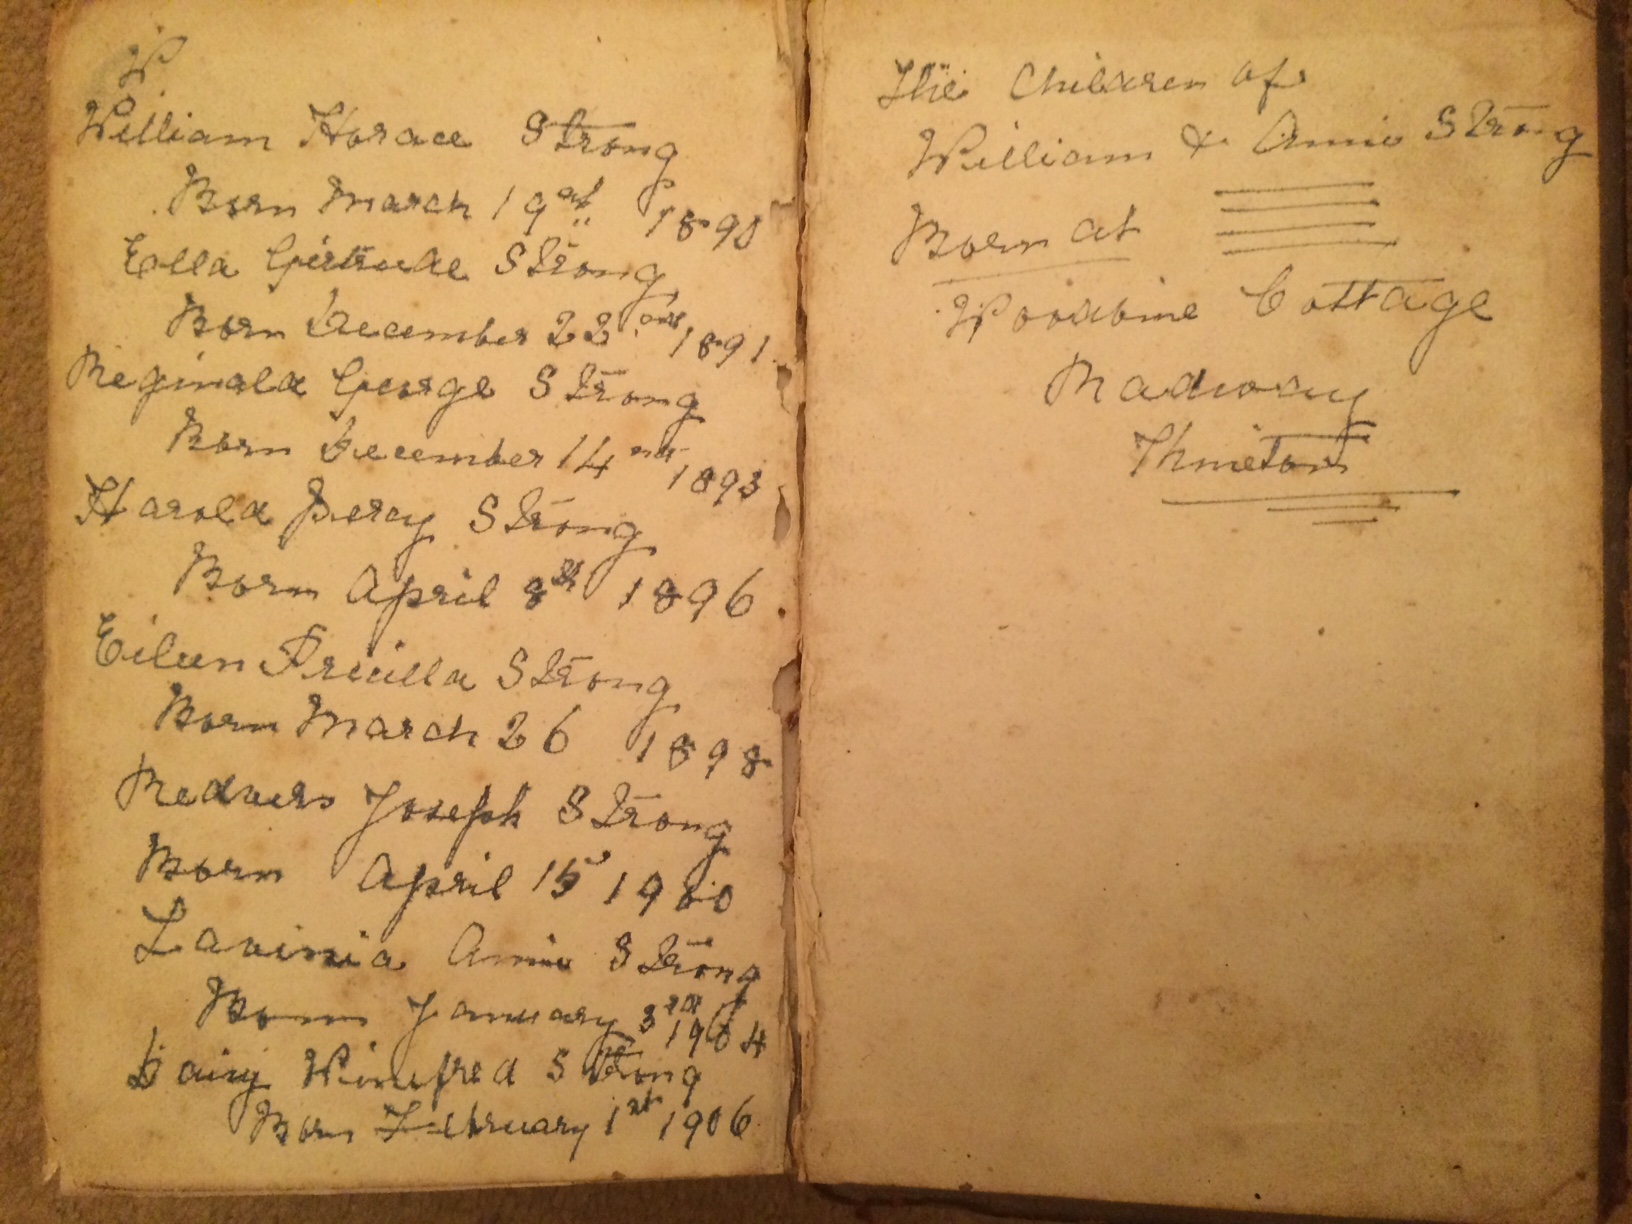 W
William Horace Strong
Born March 19 1890
Ella Girtrude Strong
Born December 22 1891
Reginald George Strong
Born December 14 1893
Harold Percy Strong
Born April 8th 1896
Eileen Precilla Strong
Born March 26 1898
Redvers Joseph Strong
Born April 15 1900
Lavinia Annie Strong
Born January 3rd 1904
Daisy Winifred Strong
Born February 1st 1906
The Children of
William & Annie Strong
Born at
Woodbine Cottage